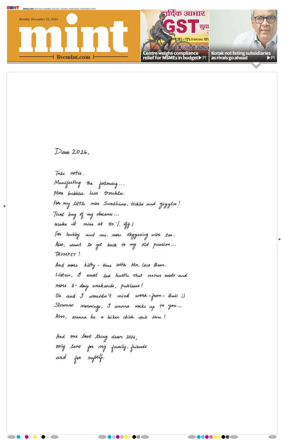 Monday, December 22, 2025
mint
livemint.com
हार्दिक आभार
GST
Centre weighs compliance
relief for MSMEs in budget ▶P1
Kotak not listing subsidiaries
as rivals go ahead ▶P1
Dear 2026,
Take notes.
Manifesting the following...
More bubbles. Less trouble.
For my little miss Sunshine, tickles and giggles!
That bag of my dreams...
make it mine at 50% off!
For hubby and me, more staggering with
Also, want to get back to my old passion...
TRUMPET!
And more kitty-time with Mr. Leo Bean.
Listen, I want bed hustle that never ends and
more 3-day weekends, puhleese!
Oh and I wouldn't mind work-from-Bali :)
Slower mornings, I wanna wake up to you...
Also, wanna be a biker chick one time!
And one last thing dear 2026,
only love for my family, friends
and for myself.